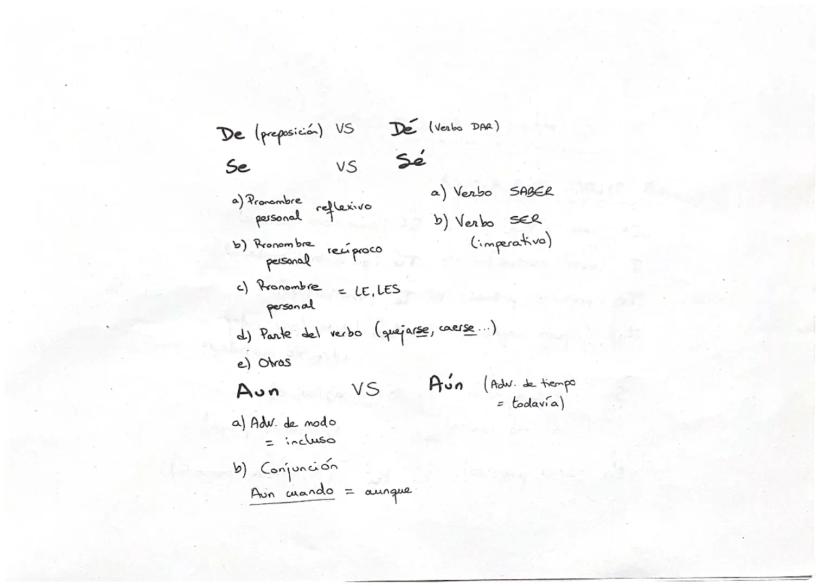 De (preposición) VS Dé (Verbo DAR)
Se VS Sé
a) Pronombre personal reflexivo
a) Verbo SABER
b) Pronombre personal recíproco
b) Verbo SER (imperativo)
c) Pronombre personal = LE, LES
d) Parte del verbo (quejarse, caerse...)
e) Otros
Aun VS Aún (Adv. de tiempo = todavía)
a) Adv. de modo
= incluso
b) Conjunción
Aun cuando = aunque